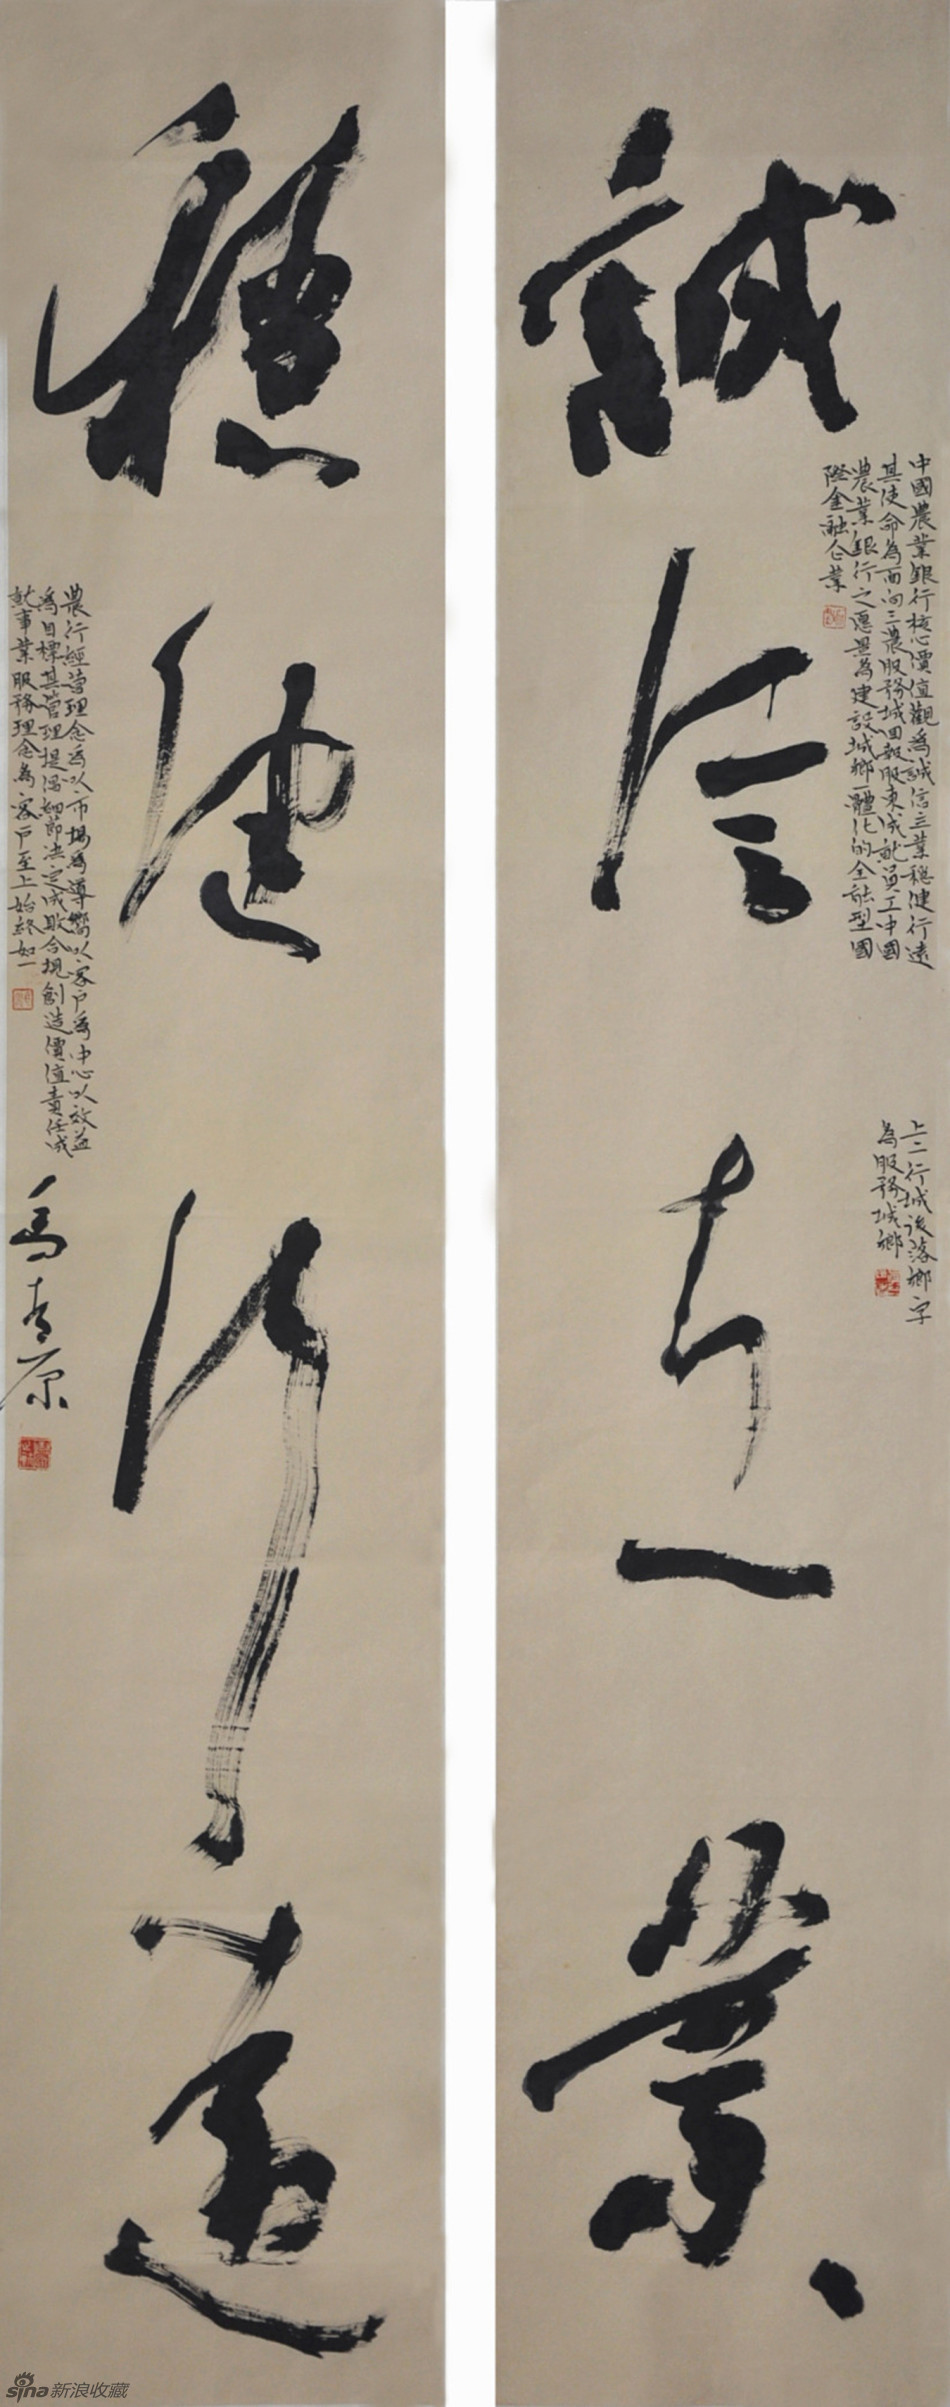 誠信立業
中國農業銀行核心價值觀為誠信立業穩健行遠
其使命為面向三農服務城回報股東成就員工中國
農業銀行之愿景為建設城鄉一體化的全能型國
際金融企業
上二行城後落鄉字
為服務城鄉
穩健行遠
農行經營理念為以市場為導嚮以客户為中心以效益
為目標其管理理念細節決定成敗合規創造價值責任成
就事業服務理念為客户至上始終如一
馬青原
sina新浪收藏